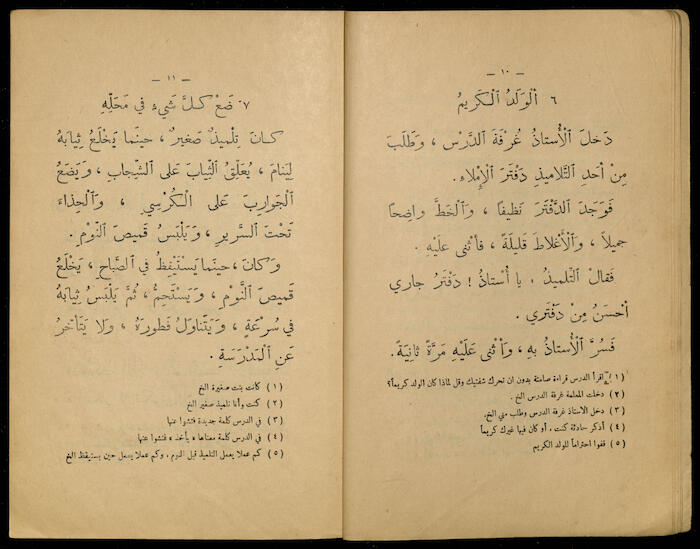 — ١٠ —
٦ اَلْوَلَدُ اَلْكَرِيمُ
دَخلَ اَلْأُستاذُ غُرْفَةَ اَلدَّرْسِ ، وَطَلَبَ
مِنْ اَحدِ اَلتَّلاميذِ دَفْتَرَ اَلْإِملاءِ.
فَوَجَدَ اَلدَّفْتَرَ نَظيفاً ، وَاَلْخَطَّ واضِحاً
جميلاً ، وَاَلْأَغْلاطَ قَليلَةً ، فأَثنى عَلَيْهِ .
فَقالَ اَلتِّلميذُ : يا أُستاذُ ! دَفْتَرُ جاري
اَحْسَنُ مِنْ دَفْتَري .
فَسُرَّ اَلْأُستاذُ بِهِ ، وَاَثْنى عَلَيْهِ مَرَّةً ثانِيَةً .
(١) إِقرأ الدرس قراءة صامتة بدون ان تحرك شفتيك وقل لماذا كان الولد كريماً؟
(٢) دخلت المعلمة غرفة الدرس الخ .
(٣) دخل الاستاذ غرفة الدرس وطلب مني الخ.
(٤) أذكر حادثة كنت ، أو كان فيها غيرك كريماً
(٥) قفوا احتراماً للولد الكريم
— ١١ —
٧ ضَعْ كُلَّ شَيْءٍ في مَحَلِّهِ
كانَ تِلْميذٌ صَغيرٌ ، حينَما يَخْلَعُ ثِيابَهُ
لِيَنامَ ، يُعَلِّقُ الثِّيابَ عَلى الشِّجابِ ، وَيَضَعُ
اَلْجَوارِبَ عَلى الْكُرْسِيِّ ، وَاَلْحِذاءَ
تَحْتَ اَلسَّريرِ ، وَيَلْبَسُ قَميصَ النَّوْمِ .
وَكانَ ، حينَما يَسْتَيْقِظُ في الصَّباحِ ، يَخْلَعُ
قَميصَ النَّوْمِ ، وَيَسْتَحِمُّ ، ثُمَّ يَلْبَسُ ثِيابَهُ
في سُرْعَةٍ ، وَيَتَناوَلُ فَطورَهُ ، وَلا يَتَأَخَّرُ
عَنِ اَلْمَدْرَسَةِ .
(١) كانت بنت صغيرة الخ
(٢) كنت وأنا تلميذ صغير الخ
(٣) في الدرس كلمة جديدة فتشوا عنها
(٤) في الدرس كلمة معناها « يأخذ » فتشوا عنها
(٥) كم عملا يعمل التلميذ قبل النوم ، وكم عملا يعمل حين يستيقظ الخ